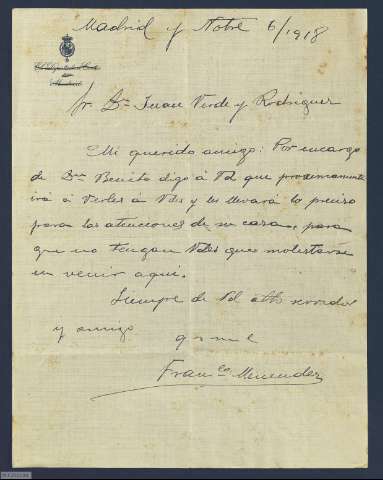 Madrid y Nobre 6/1918
Sr Dn Juan Verde y Rodriguez
Mi querido amigo: Por encargo
de Dn Benito digo á Vd que proximamente
irá á verles á Vdes y les llevará lo preciso
para las atenciones de su casa, para
que no tengan Vdes que molestarse
en venir aqui.
Siempre de Vd affo servidor
y amigo
q s m e
Franco Menendez